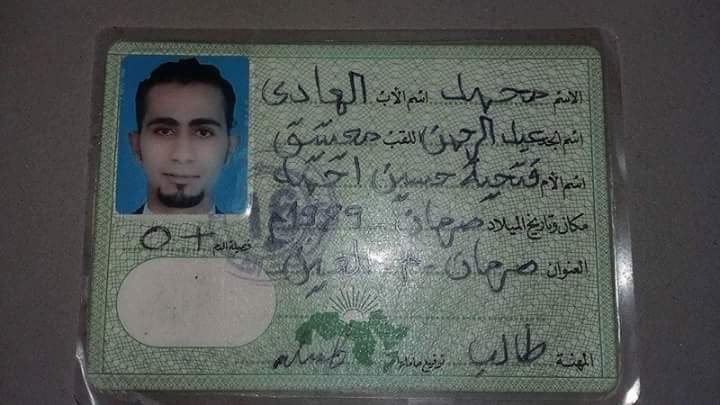 الاسم محمد اسم الاب الهادى
اسم الجد عبدالرحمن اللقب معتيق
اسم الأم فتحية حسين احمد
مكان وتاريخ الميلاد صرمان 1989
فصيلة الدم O+
العنوان صرمان
المهنة طالب توقيع حاملها